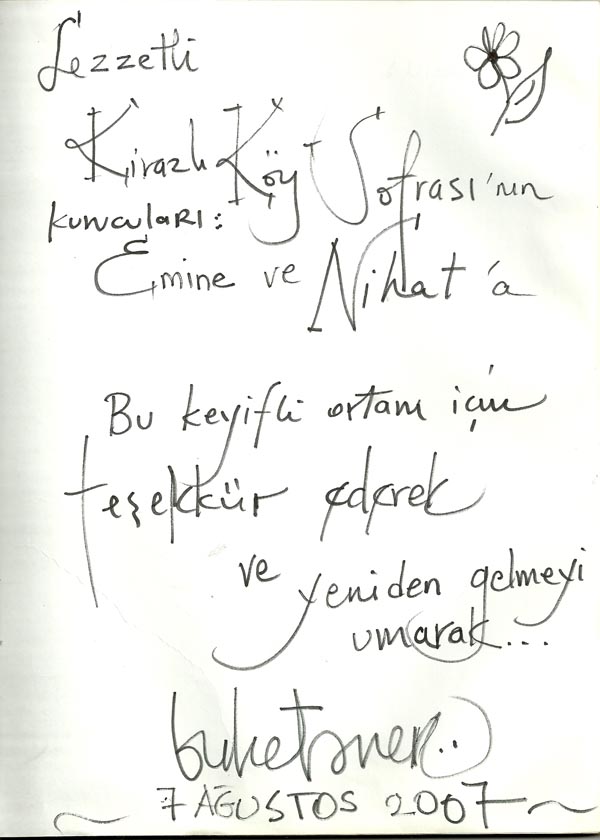 Lezzetli
Kirazlı Köy Sofrası'nın
kurucuları:
Emine ve Nihat'a
Bu keyifli ortam için
teşekkür ederek
ve yeniden gelmeyi
umarak...
buketuzuner..
7 AĞUSTOS 2007